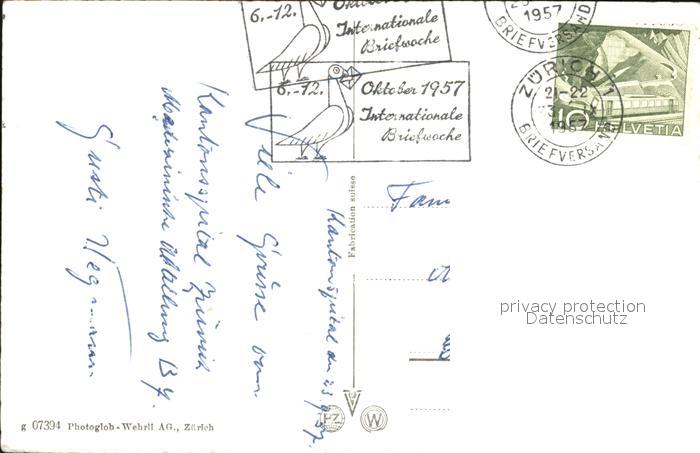 6.-12.
Internationale
Briefwoche
1957
BRIEFVERSAND
6.-12. Oktober 1957
Internationale
Briefwoche
ZÜRICH 1
21-22
1957
BRIEFVERSAND
10 HELVETIA
Kantonsspital den 23.9.57.
Viele Grüsse vom
Kantonsspital Zürich
Medizinische Abteilung B
Gusti
Fam
Fabrication suisse
privacy protection
Datenschutz
g 07394 Photoglob-Wehrli AG., Zürich
PZ W